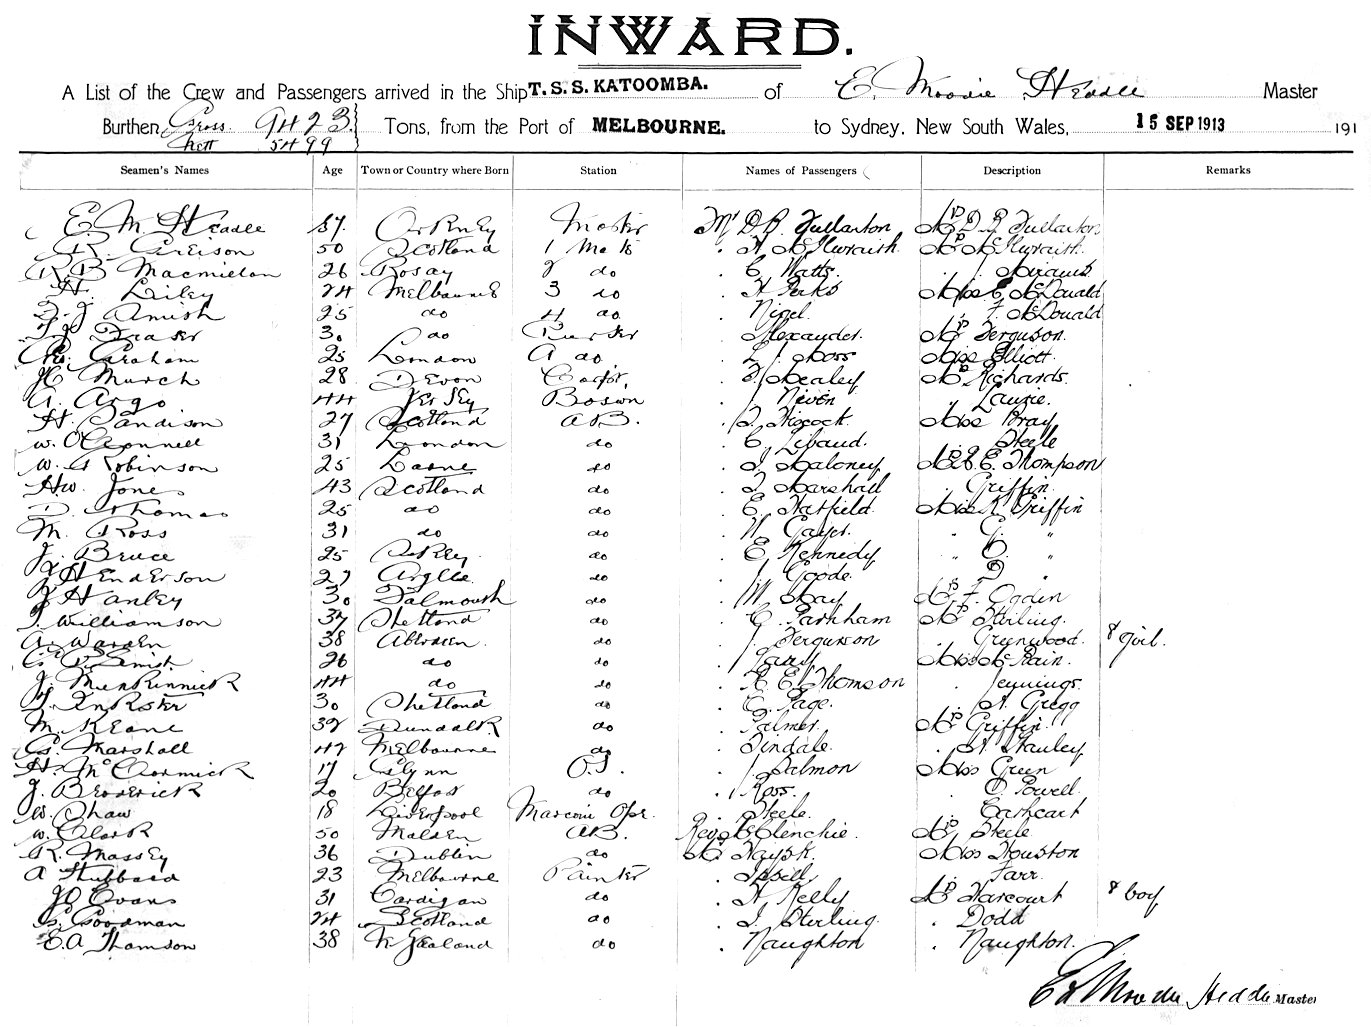 INWARD.
A List of the Crew and Passengers arrived in the Ship T. S. S. KATOOMBA. of E. Moodie Heddle Master
Burthen Gross. 9423 Tons, from the Port of MELBOURNE. to Sydney, New South Wales, 15 SEP 1913 191
Nett 5499
Seamen's Names Age Town or Country where Born Station Names of Passengers Description Remarks
E. M. Heddle 57. Orkney Master Mr D. B. Fullarton Mrs D. B. Fullarton
R. Greison 50 Scotland 1 Mate . H McIlwraith Mrs McIlwraith
R B Macmillan 26 Rosay 2 do . C Watts.
H. Liley 24 Melbourne 3 do . H Perks Miss C McDonald
D. J. Amish 25 do 4 do . Nigel " F. McDonald
T J Fraser 30 do Purser . Alexander. Mrs Ferguson.
Geo. Graham 25 London A do . L. J. Moss Miss Elliott
H Murch 28 Devon Carptr. . F. Healey Mrs Richards.
A. Argo 44 Jersey Boswn . J Niven " Laurie.
H. Sandison 27 Scotland A B. . Hiscock. Miss Bray
W. O'Connell 31 London do . C. Libaud. Steele
W. Robinson 25 Larne do . J. Maloney Mrs C. Thompson
HW. Jones 43 Scotland do . J. Marshall . Griffin.
D. Thomas 25 do do . E. Hatfield. Miss K. Griffin
M. Ross 31 do do . W. " G. "
J. Bruce 25 do . E. Kennedy " C. "
J Henderson 27 Argyle do . J Goode.
J Hanley 30 Dalmouth do . W. May Mrs F. Ogden
J. Williamson 37 Shetland do . C. Parkham Mrs Stirling.
A. Warden 38 Aberdeen. do . J Fergusson . Greenwood. & Girl.
C. D Smith 26 do do . Miss McBain.
J. Munkinnick 44 do do . R. E. Thomson . Jennings.
J. Inkster 30 Shetland do . C. Page. . A. Gregg
M. Keane 32 Dundalk do . Palmer. Mrs Griffin.
G. Marshall 42 Melbourne do . Tindale. . A. Stanley
H. McCormick 17 Glynn O.S. . J. Salmon Miss Green
J. Broderick 20 Belfast do . J Ross. . C. Powell.
W. Shaw 18 Liverpool Marconi Opr. . Steele. Cathcart
W. Clark 50 Malden AB. Revd Clenchie. Mrs Steele
R. Massey 36 Dublin do Mr Miss Houston
A Hubbard 23 Melbourne Painter . Farr.
J D Evans 31 Cardigan do . H. Kelly Mrs Harcourt & boy
G. Goodman 24 Scotland do . J. Stirling. . Dodd
E. A. Thomson 38 N Zealand do . Naughton . Naughton.
Ed Moodie Heddle Master